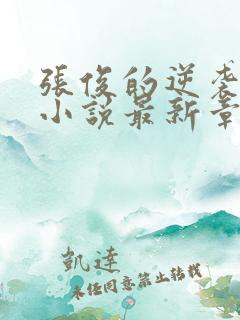 張俊的逆袭
小說最新章
凱達
未经同意禁止转载